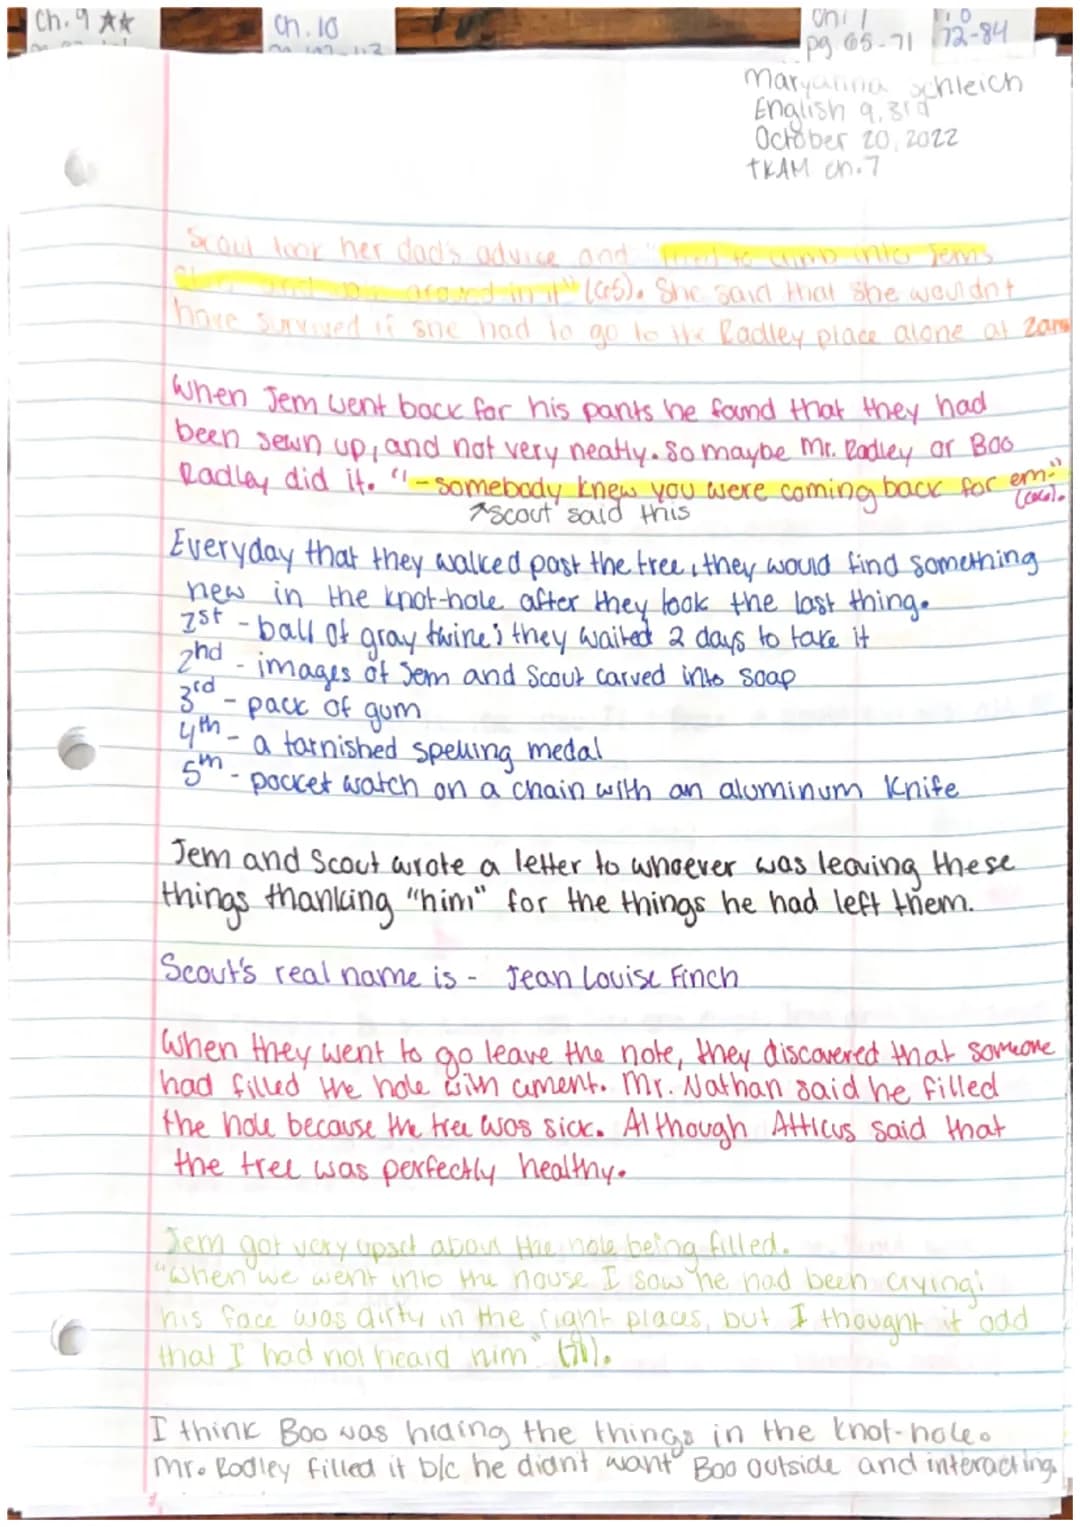 Ch. 9 ★★
Ch. 10
Ch. 7
pg 65-71
72-84
Maryanna Schleich
English 9, 3rd
October 20, 2022
TKAM Ch. 7
Scout took her dad's advice and "tried to climb into Jem's
around in it" (65). She said that she wouldn't
have survived if she had to go to the Radley place alone at 2am
When Jem went back for his pants he found that they had
been sewn up, and not very neatly. So maybe Mr. Radley or Boo
Radley did it. "-somebody knew you were coming back for em."
↗Scout said this
Everyday that they walked past the tree, they would find something
new in the knot-hole after they took the last thing.
1st - ball of gray twine; they waited 2 days to take it
2nd - images of Jem and Scout carved into soap
3rd - pack of gum
4th - a tarnished spelling medal
5th - pocket watch on a chain with an aluminum Knife
Jem and Scout wrote a letter to whoever was leaving these
things thanking "him" for the things he had left them.
Scout's real name is - Jean Louise Finch
When they went to go leave the note, they discovered that someone
had filled the hole with cement. Mr. Nathan said he filled
the hole because the tree was sick. Although Atticus said that
the tree was perfectly healthy.
Jem got very upset about the hole being filled.
"When we went into the house I saw he had been crying;
his face was dirty in the right places, but I thought it odd
that I had not heard him"
I think Boo was hiding the things in the knot-hole.
Mr. Radley filled it b/c he didn't want Boo outside and interacting.